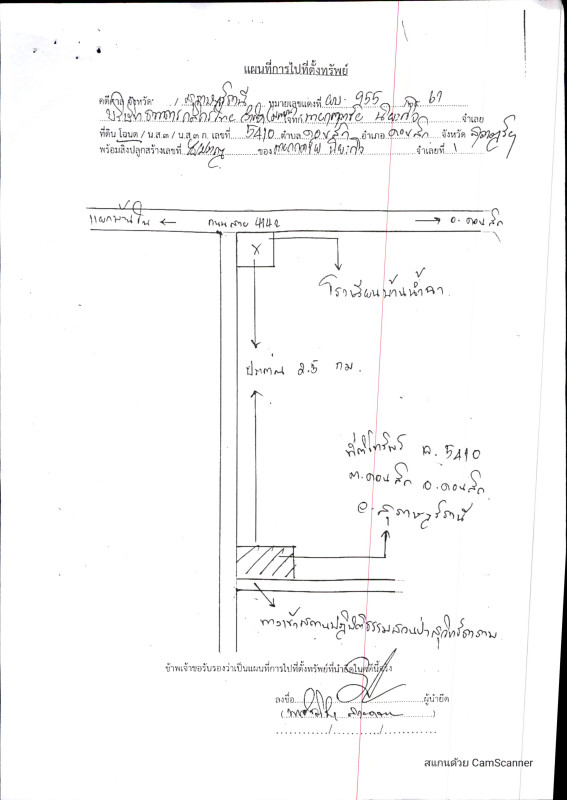 แผนที่การไปที่ตั้งทรัพย์
คดีศาล จังหวัด / สุราษฎร์ธานี หมายเลขแดงที่ ผบ. 955 / 67
บริษัท ธนาคารกสิกรไทย จำกัด (มหาชน) โจทก์ จำเลย
ที่ดิน โฉนด / น.ส.๓ / น.ส.๓ ก. เลขที่ 5410 ตำบล ดอนสัก อำเภอ ดอนสัก จังหวัด สุราษฎร์ฯ
พร้อมสิ่งปลูกสร้างเลขที่ ของ จำเลยที่ 1
← ถนนสาย 4142 → อ. ดอนสัก
X
โรงเรียนบ้านน้ำฉา
ประมาณ 2.5 กม.
ที่ตั้งทรัพย์ ฉ. 5410
ต.ดอนสัก อ.ดอนสัก
จ.สุราษฎร์ธานี
ทางเข้าสถานปฏิบัติธรรมสวน
ข้าพเจ้าขอรับรองว่าเป็นแผนที่การไปที่ตั้งทรัพย์ที่นำยึดในคดีนี้จริง
ลงชื่อ ผู้นำยึด
สแกนด้วย CamScanner